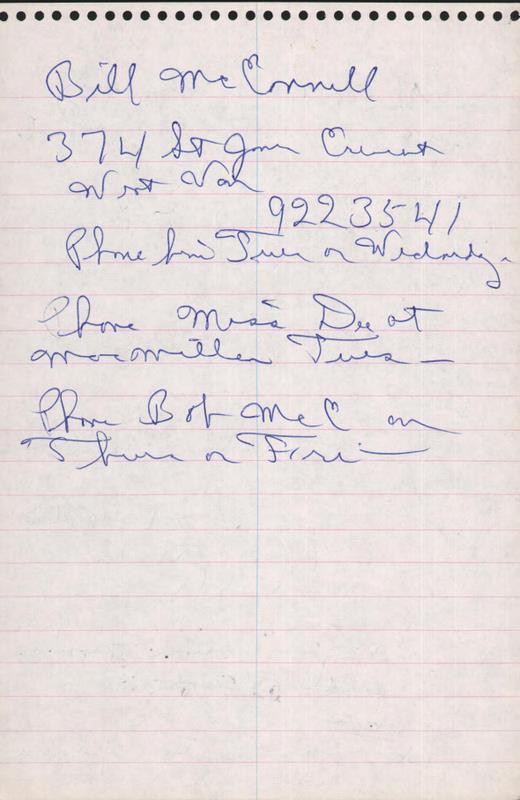 Bill McConnell
374 St James Crescent
West Van
922 3541
Phone him Tues or Wednesday.
Phone Miss Dee at
Macmillan Tues —
Phone Bob McC on
Thurs or Fri —